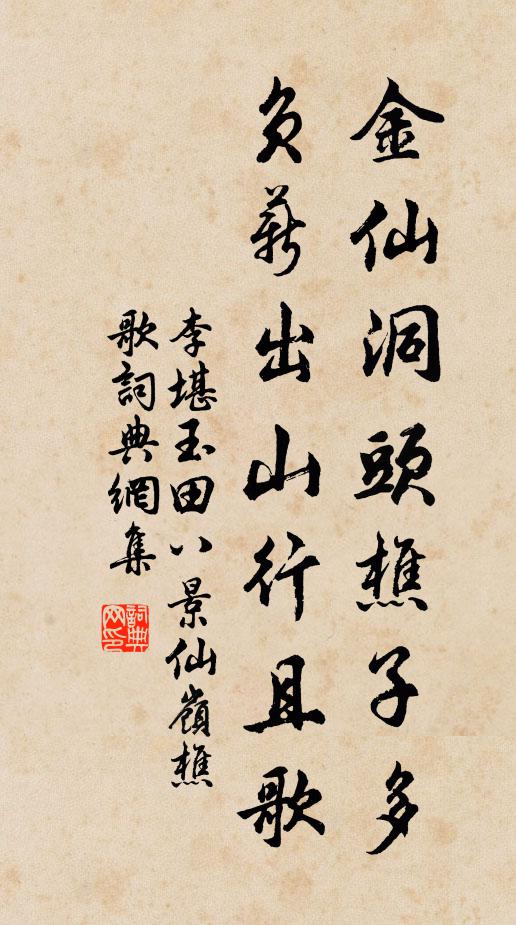 金仙洞頭樵子多
負薪出山行且歌
李堪玉田八景仙嶺樵
歌詞典網集
詞典網印